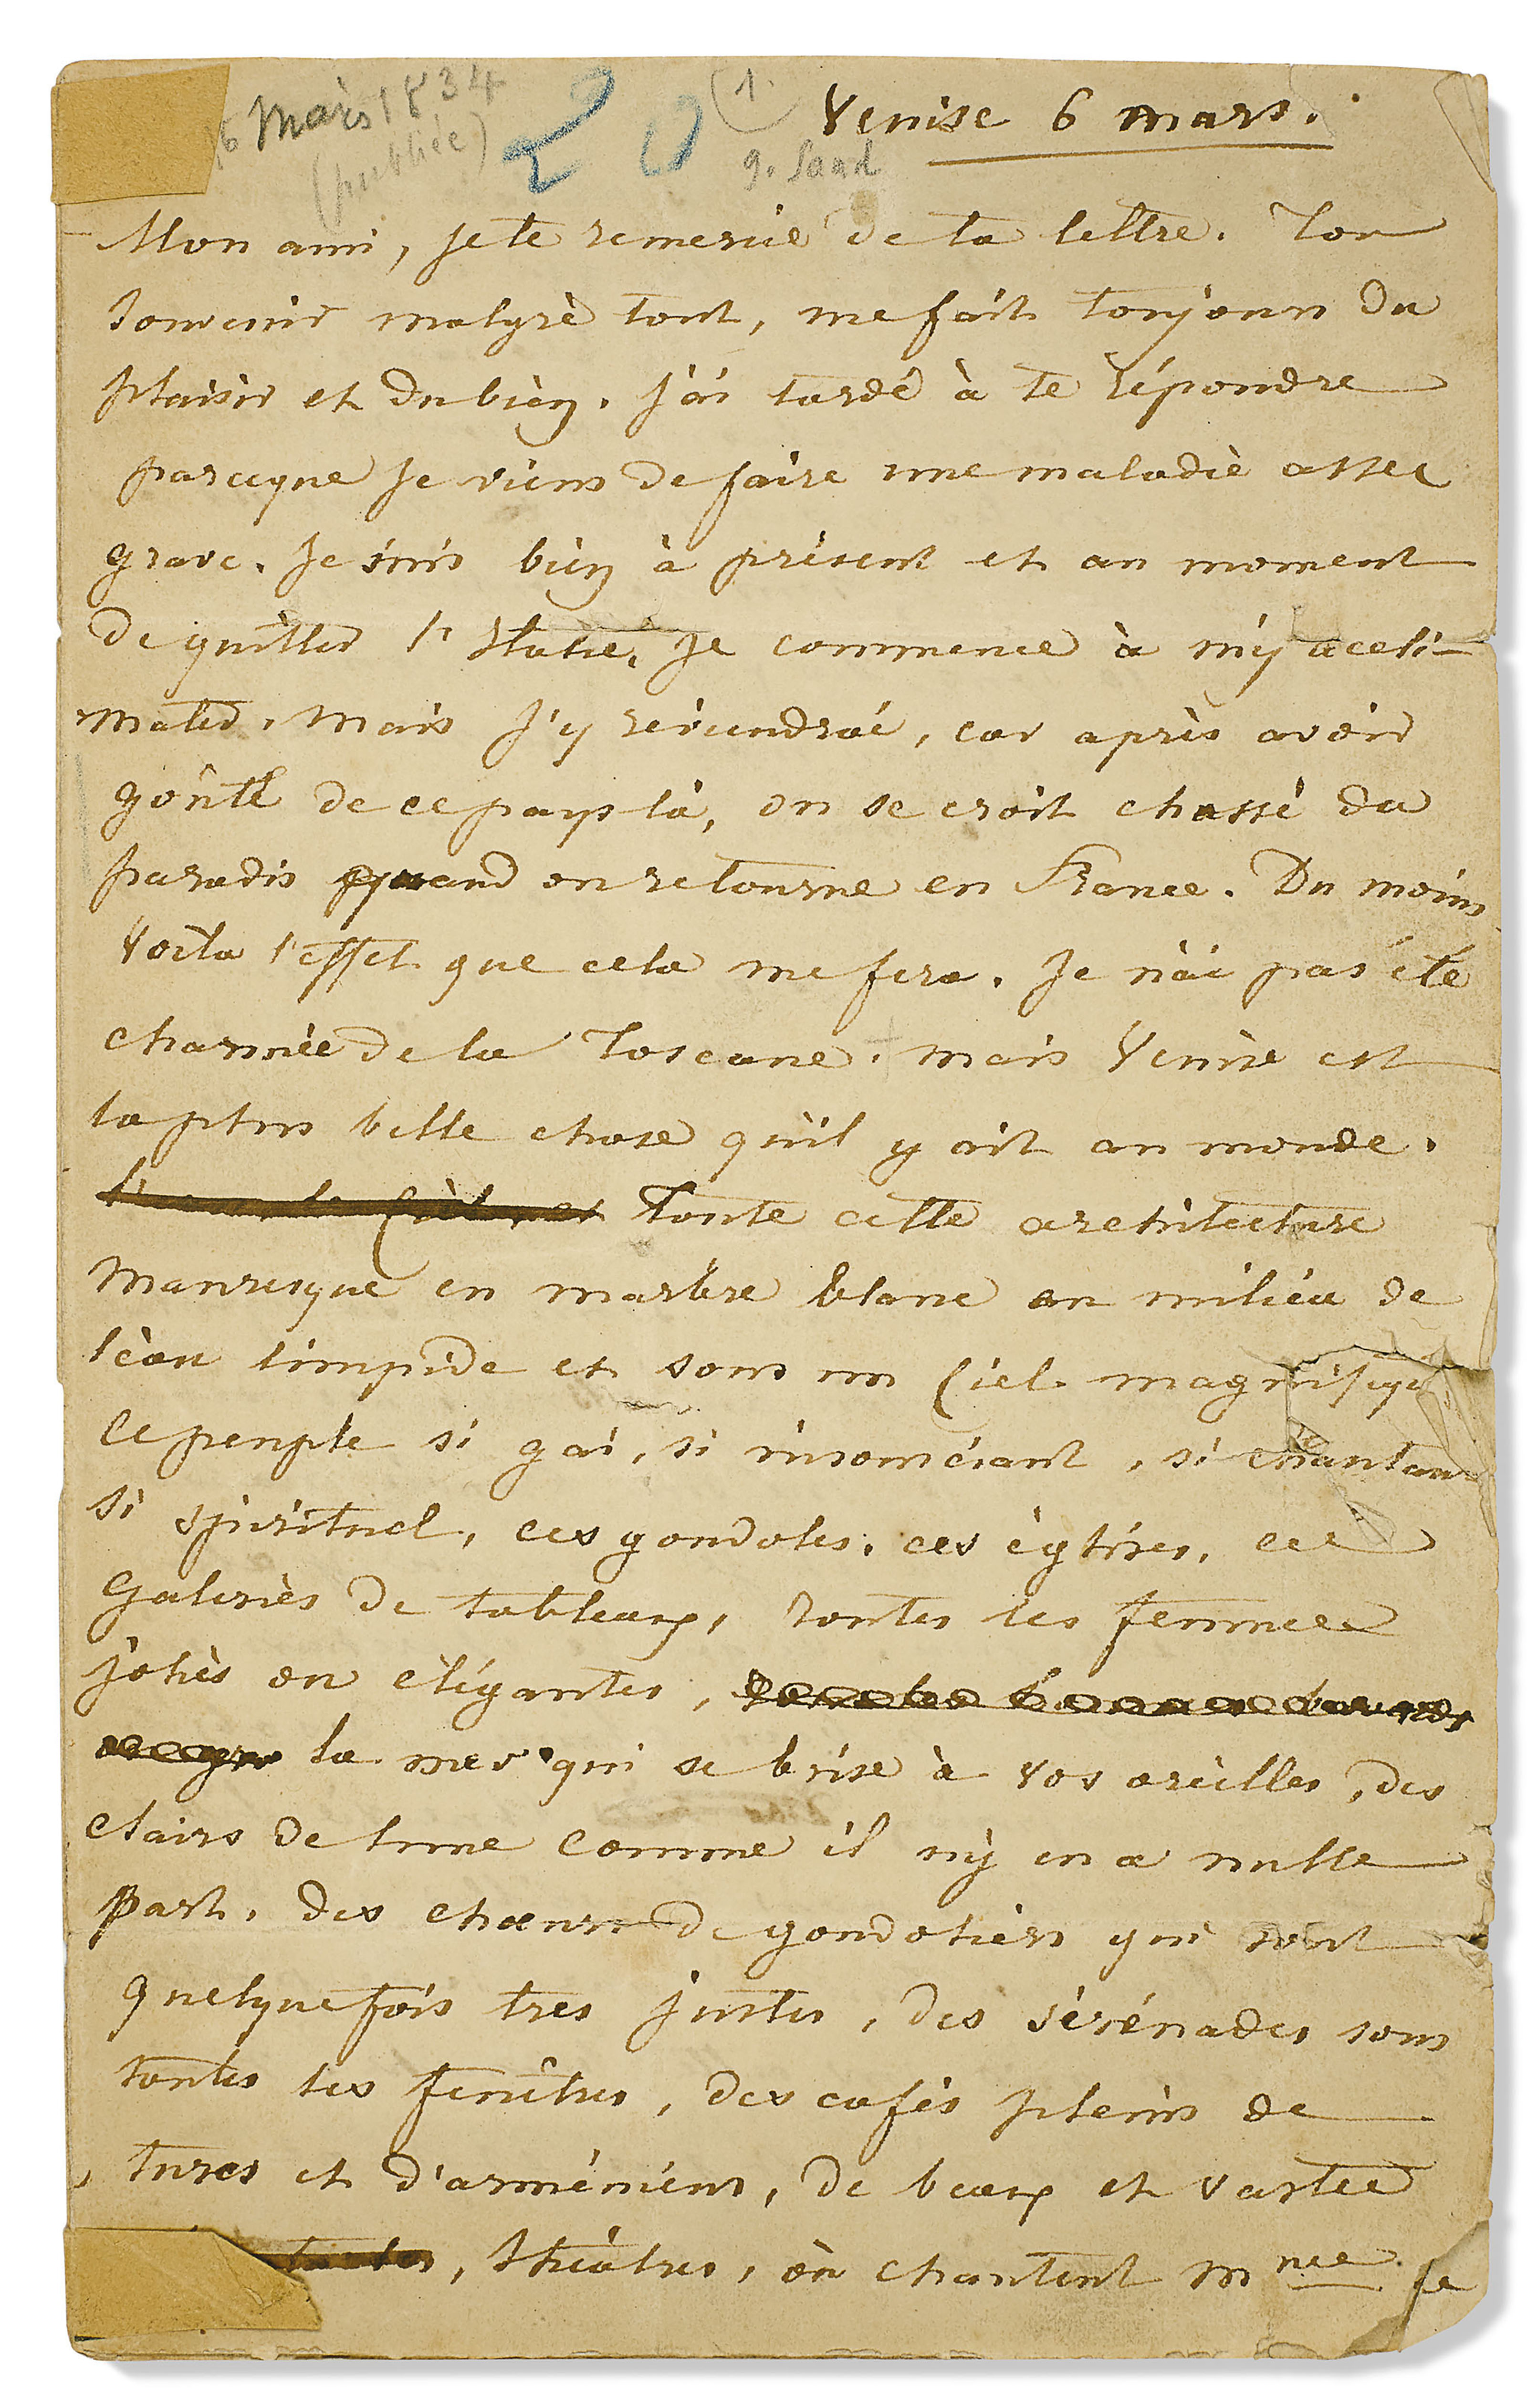 6 Mars 1834
(publiée)
20
(1.
Venise 6 mars.
g. Sand
Mon ami, je te remercie de ta lettre. Ton
souvenir malgré tout, me fait toujours du
plaisir et du bien. J'ai tardé à te répondre
parceque je viens de faire une maladie assez
grave. Je suis bien à présent et au moment
de quitter l'Italie, je commence à m'y accli-
mater. Mais j'y reviendrai, car après avoir
goûté de ce pays là, on se croit chassé du
paradis quand on retourne en France. Du moins
voila l'effet que cela me fera. Je n'ai pas été
charmée de la Toscane. mais Venise est
la plus belle chose qu'il y ait au monde.
toute cette architecture
mauresque en marbre blanc au milieu de
l'eau limpide et sous un Ciel magnifique
ce peuple si gai, si insouciant, si chantant
si spirituel, ces gondoles, ces églises, ces
galeries de tableaux, toutes les femmes
jolies ou élégantes,
la mer qui se brise à vos oreilles, des
clairs de lune comme il n'y en a nulle
part, des chœurs de gondoliers qui sont
quelquefois tres justes, des sérénades sous
toutes les fenêtres, des cafés pleins de
turcs et d'arméniens, de beaux et vastes
, théatres, où chantent Mme